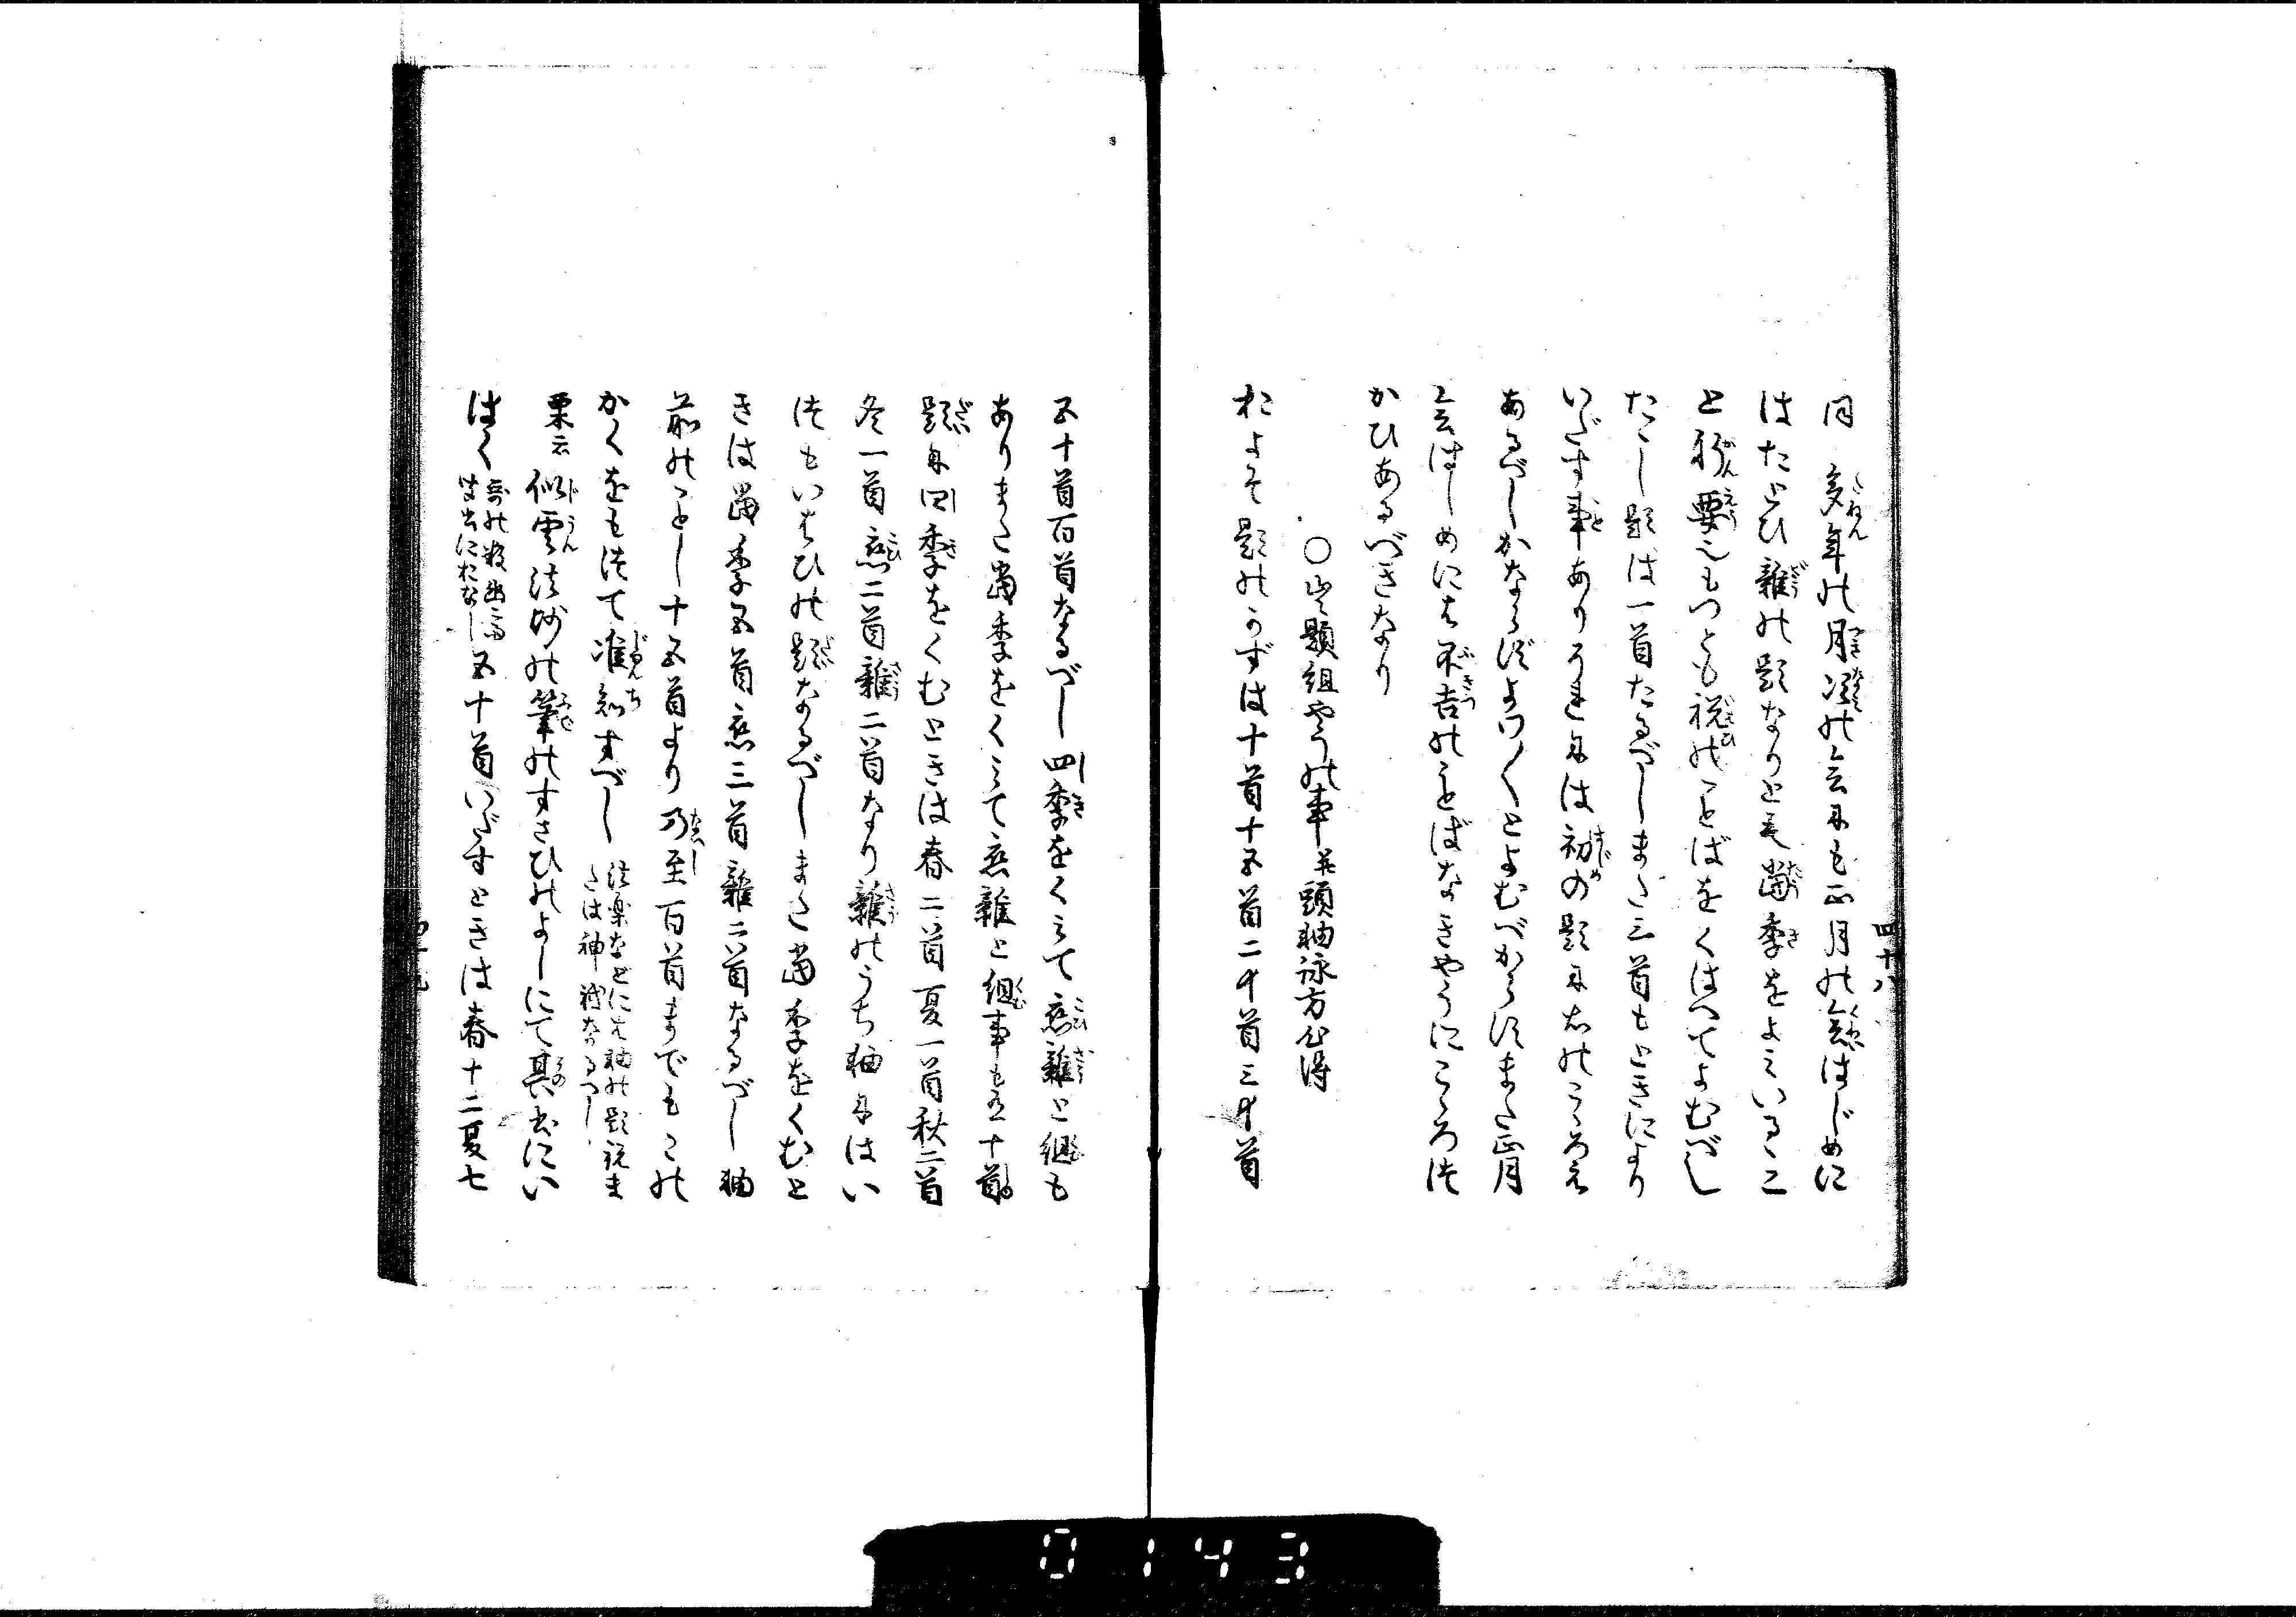 四十八
同 多年の月次の会にも正月の会はじめに
はたとひ雑の題なりとも当季をよみいるゝこ
と肝要也もつとも祝のことばをくはへてよむべし
たゞし題は一首たるべしまた三首もときにより
いだす事ありそれには初の題に右のこゝろえ
あるべしかならずよつ〳〵とよむべからずまた正月
会はじめには不吉のことばなきやうにこゝろづ
かひあるべきなり
○出題組やうの事并頭軸詠方心得
およそ題のかずは十首十五首二十首三十首
五十首百首なるべし四季をくみて恋雑と組も
ありまた当季をくみて恋雑と組事も有十首の
題に四季をくむときは春二首夏一首秋二首
冬一首恋二首雑二首なり雑のうち軸にはい
つもいはひの題なるべしまた当季をくむと
きは当季五首恋三首雑二首なるべし軸
前のことし十五首より乃至百首までもこの
かくをもつて准知すべし 法楽などには軸の題祝ま
たは神祇なるべし
栗云 似雲法師の筆のすさひのよしにて其書にい
はく 五十首いだすときは春十二夏七